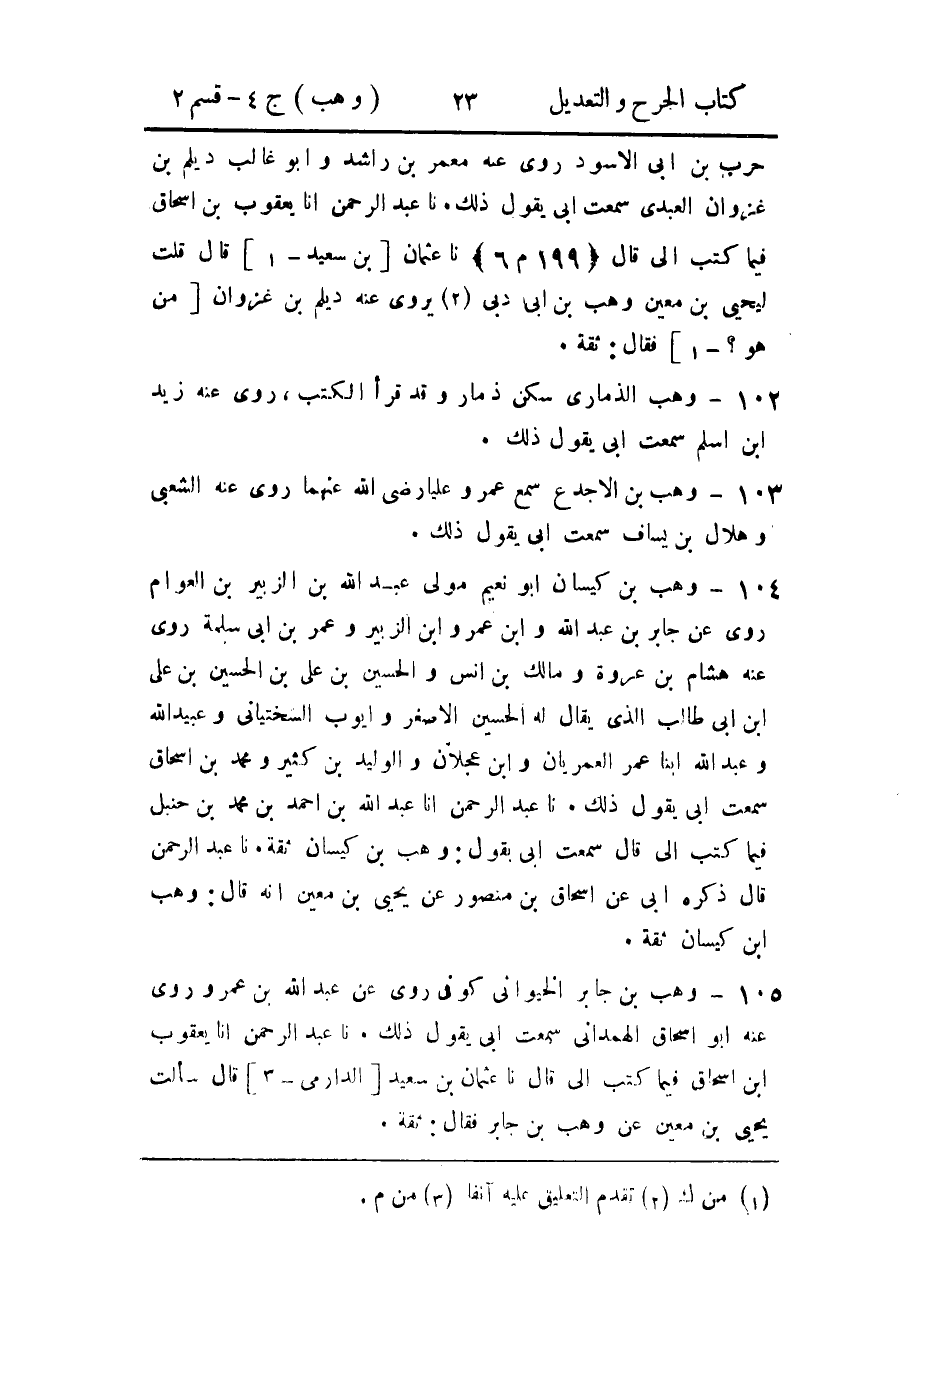 كتاب الجرح والتعديل ٢٣ (وهب) ج ٤ - قسم ٢
حرب بن ابى الاسود روى عنه معمر بن راشد و ابو غالب ديلم بن
غزوان العبدى سمعت ابى يقول ذلك . نا عبد الرحمن انا يعقوب بن اسحاق
فيما كتب الى قال ﴿١٩٩ م ٦﴾ نا عثمان [ بن سعيد - ١ ] قال قلت
ليحيى بن معين وهب بن ابى دبى (٢) يروى عنه ديلم بن غزوان [ من
هو ؟ - ١ ] فقال : ثقة .
١٠٢ - وهب الذمارى سكن ذمار و قد قرأ الكتب ، روى عنه زيد
ابن اسلم سمعت ابى يقول ذلك .
١٠٣ - وهب بن الاجدع سمع عمر و عليا رضى الله عنهما روى عنه الشعبى
و هلال بن يساف سمعت ابى يقول ذلك .
١٠٤ - وهب بن كيسان ابو نعيم مولى عبد الله بن الزبير بن العوام
روى عن جابر بن عبد الله و ابن عمر و ابن الزبير و عمر بن ابى سلمة روى
عنه هشام بن عروة و مالك بن انس و الحسين بن على بن الحسين بن على
ابن ابى طالب الذى يقال له الحسين الاصغر و ايوب السختيانى و عبيد الله
و عبد الله ابنا عمر العمريان و ابن عجلان و الوليد بن كثير و محمد بن اسحاق
سمعت ابى يقول ذلك . نا عبد الرحمن انا عبد الله بن احمد بن محمد بن حنبل
فيما كتب الى قال سمعت ابى يقول : وهب بن كيسان ثقة . نا عبد الرحمن
قال ذكره ابى عن اسحاق بن منصور عن يحيى بن معين انه قال : وهب
ابن كيسان ثقة .
١٠٥ - وهب بن جابر الخيوانى كوفى روى عن عبد الله بن عمرو روى
عنه ابو اسحاق الهمدانى سمعت ابى يقول ذلك . نا عبد الرحمن انا يعقوب
ابن اسحاق فيما كتب الى قال نا عثمان بن سعيد [ الدارمى - ٣ ] قال سألت
يحيى بن معين عن وهب بن جابر فقال : ثقة .
(١) من ك (٢) تقدم التعليق عليه آنفا (٣) من م .